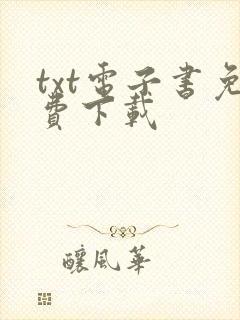 txt電子書免
費下載
釀風華